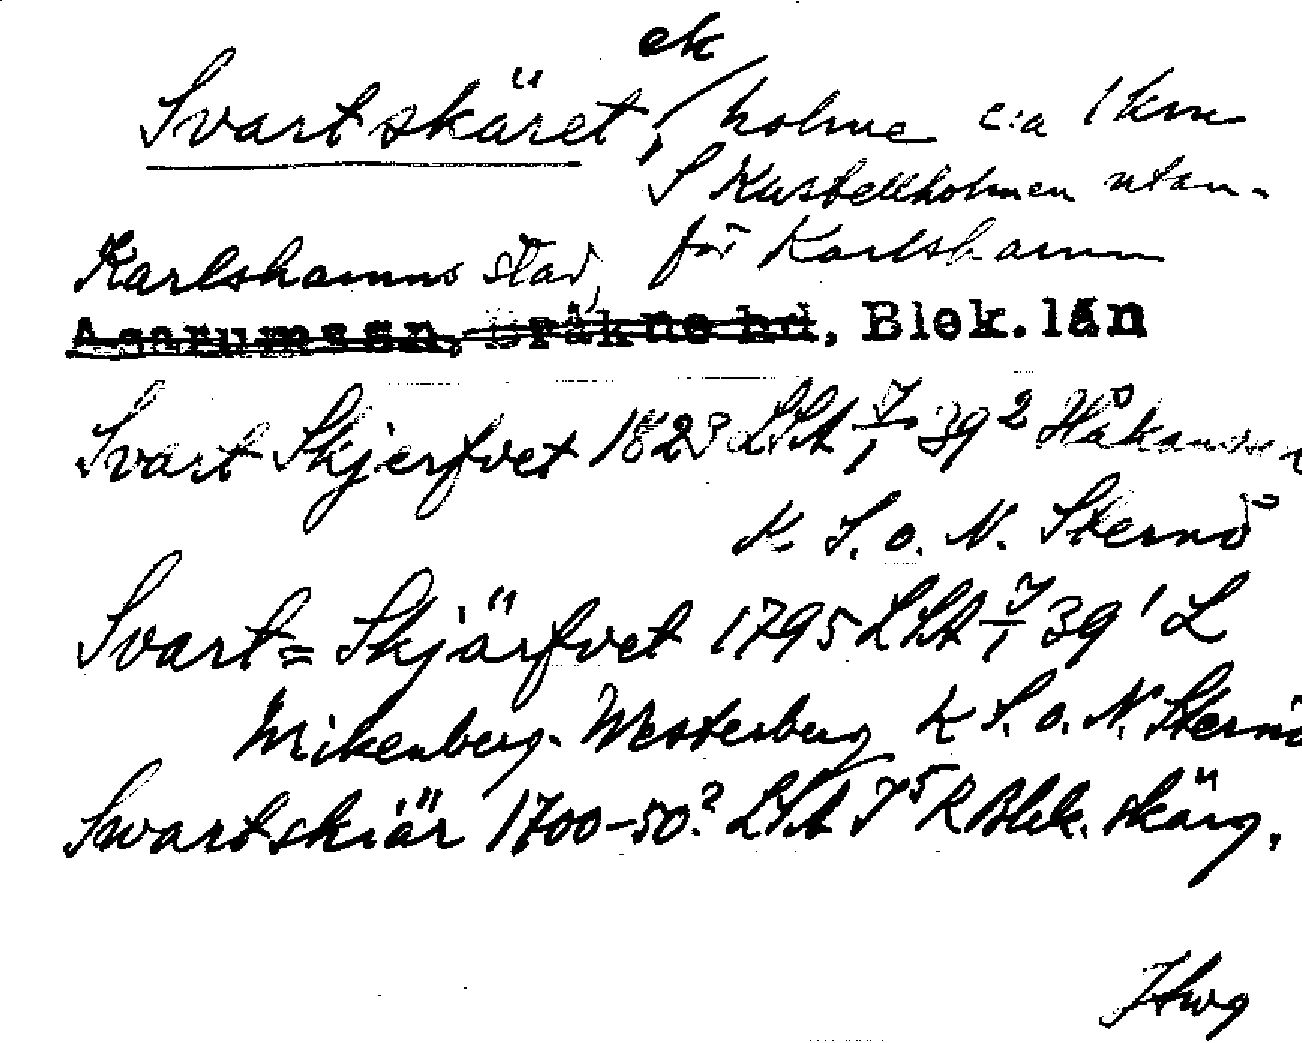 ek
Svartskäret, holme c:a 1 km
S Kastellholmen utan-
för Karlshamn
Karlshamns stad,
Asarums sn, Bräkne hd, Blek. län
Svart Skjerfvet 1823 LSA 7/1 39² Håkansson
K. S. o. N. Sternö
Svart= Skjärfvet 1795 LSA 7/1 39¹ L
Wikenberg-Westerberg K S. o. N. Sternö
Swartskiär 1700-50? LSA 7⁵ R Blek. skärg.